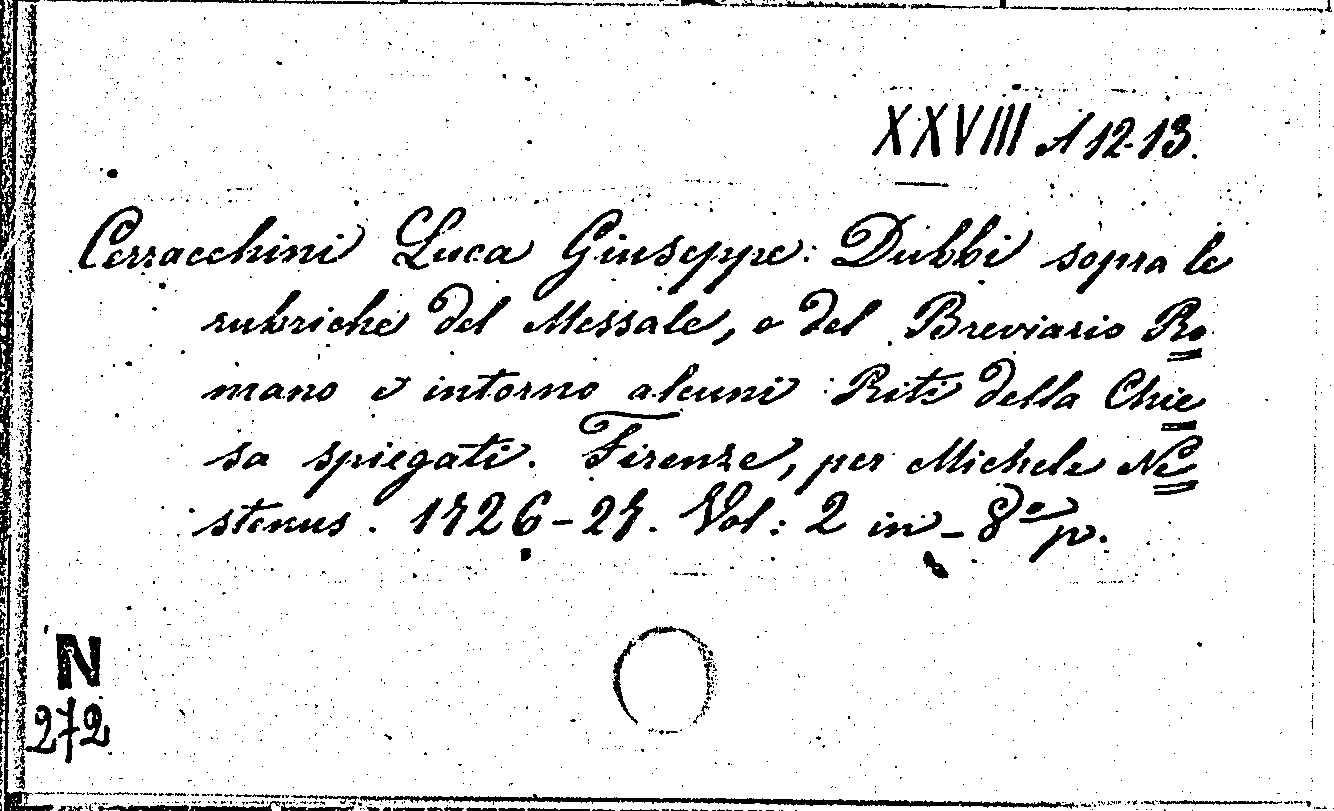 XXVIII A 12-13.
Cerracchini Luca Giuseppe: Dubbi sopra le
rubriche del Messale, e del Breviario Ro=
mano e intorno alcuni Riti della Chie=
sa spiegati. Firenze, per Michele Ne=
stenus. 1726-27. Vol: 2 in-8º p.
N
272